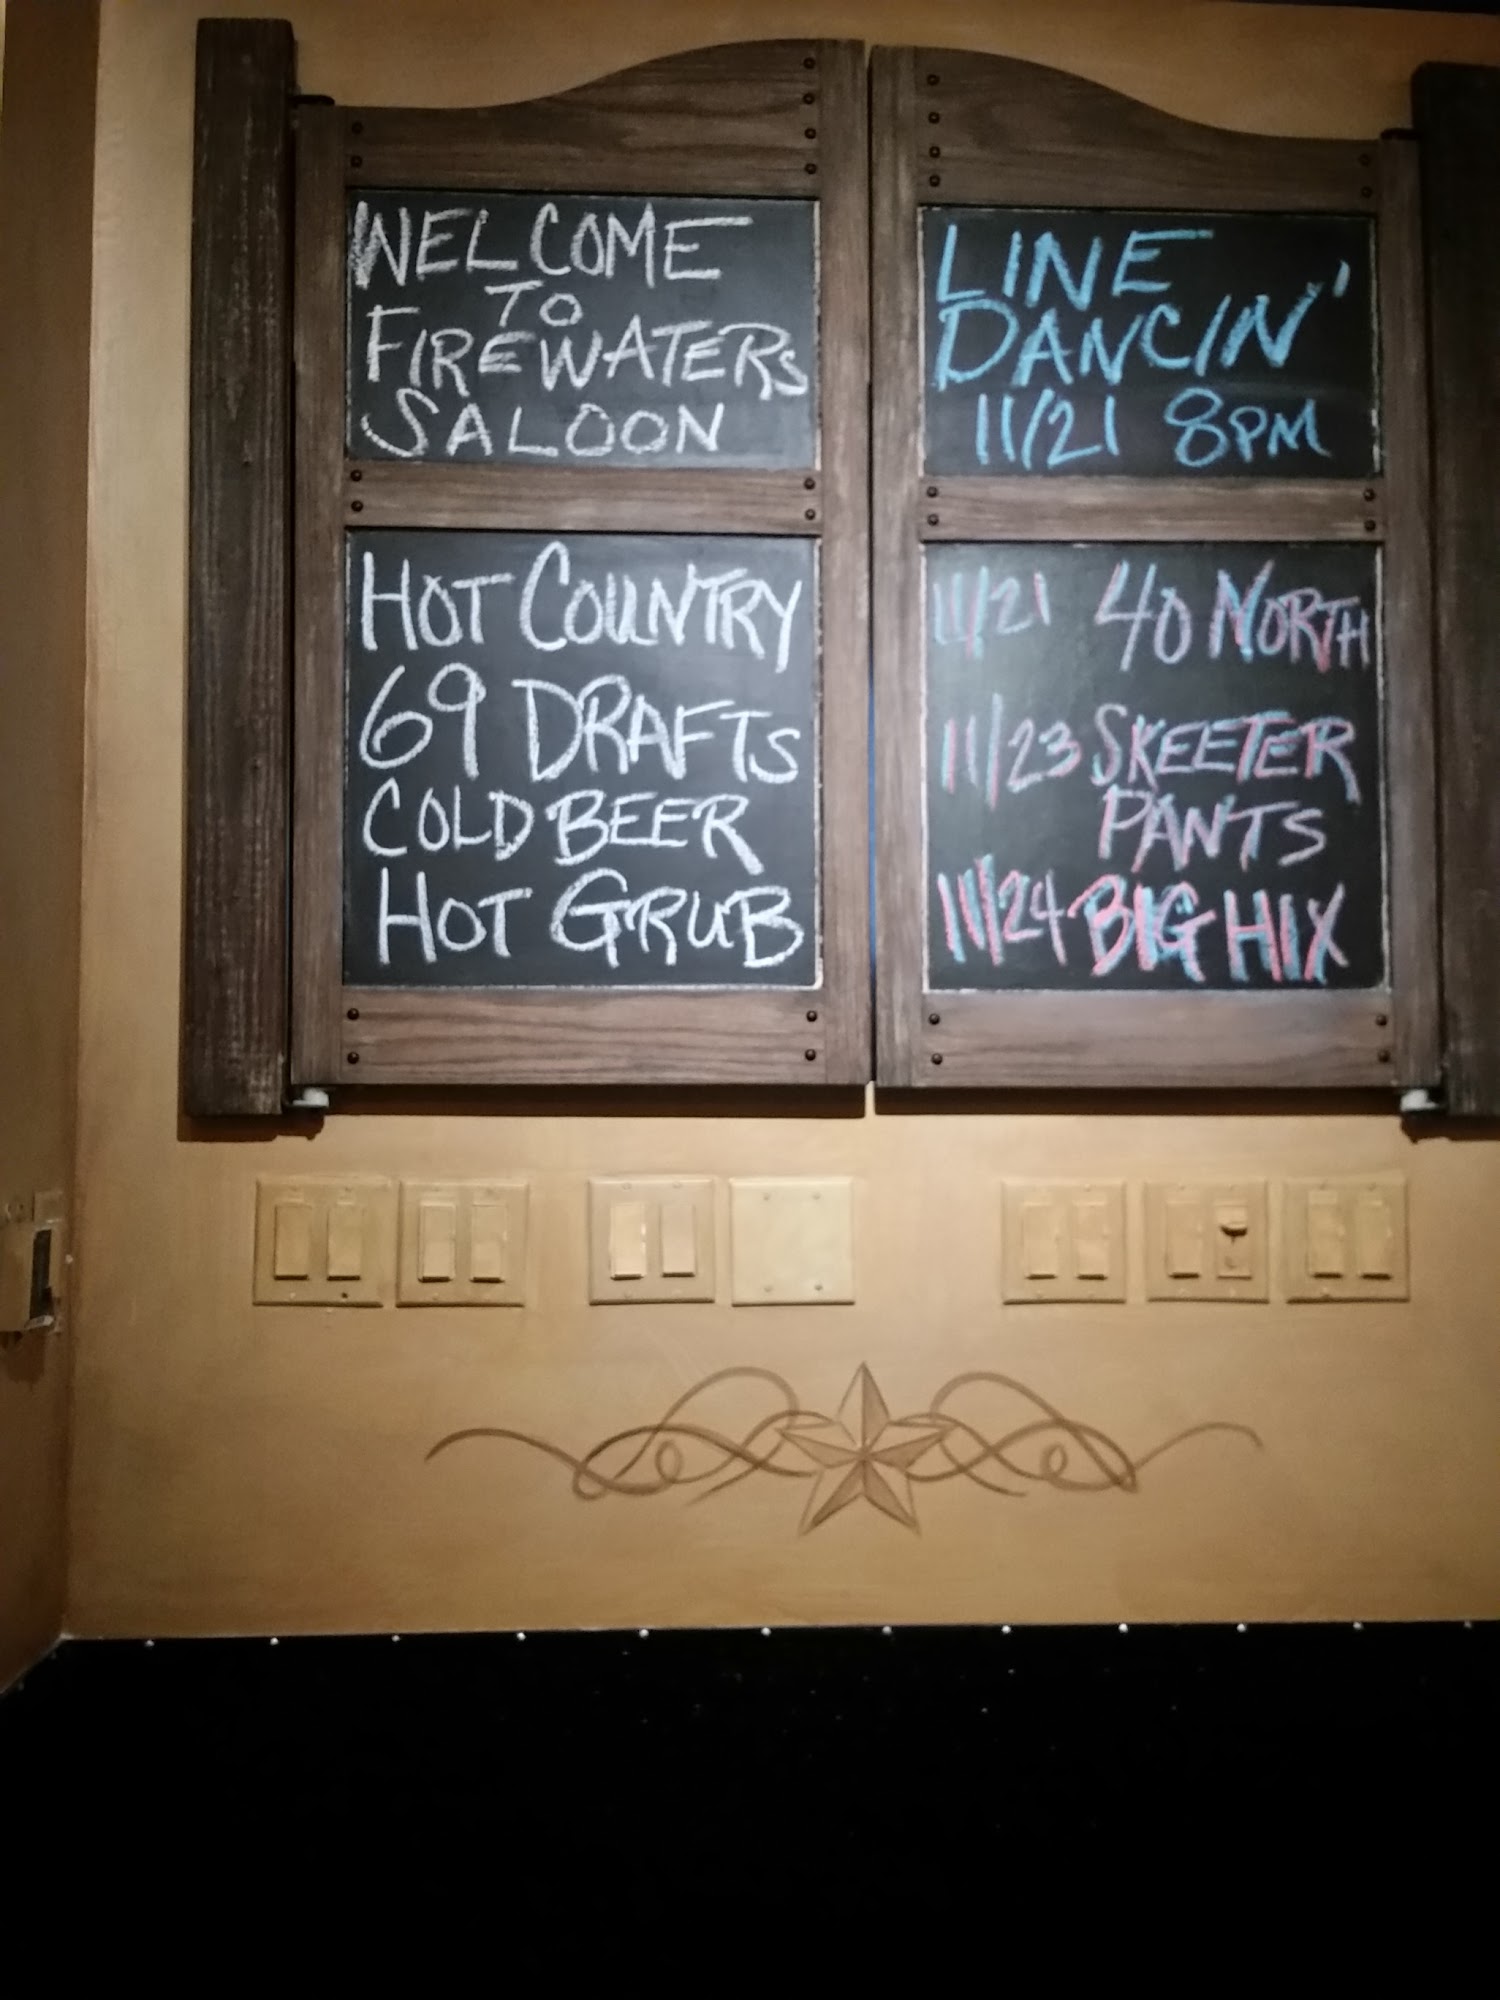 WELCOME
TO
FIREWATERS
SALOON
HOT COUNTRY
69 DRAFTS
COLD BEER
HOT GRUB
LINE
DANCIN'
11/21 8PM
11/21 40 NORTH
11/23 SKEETER
PANTS
11/24 BIG HIX